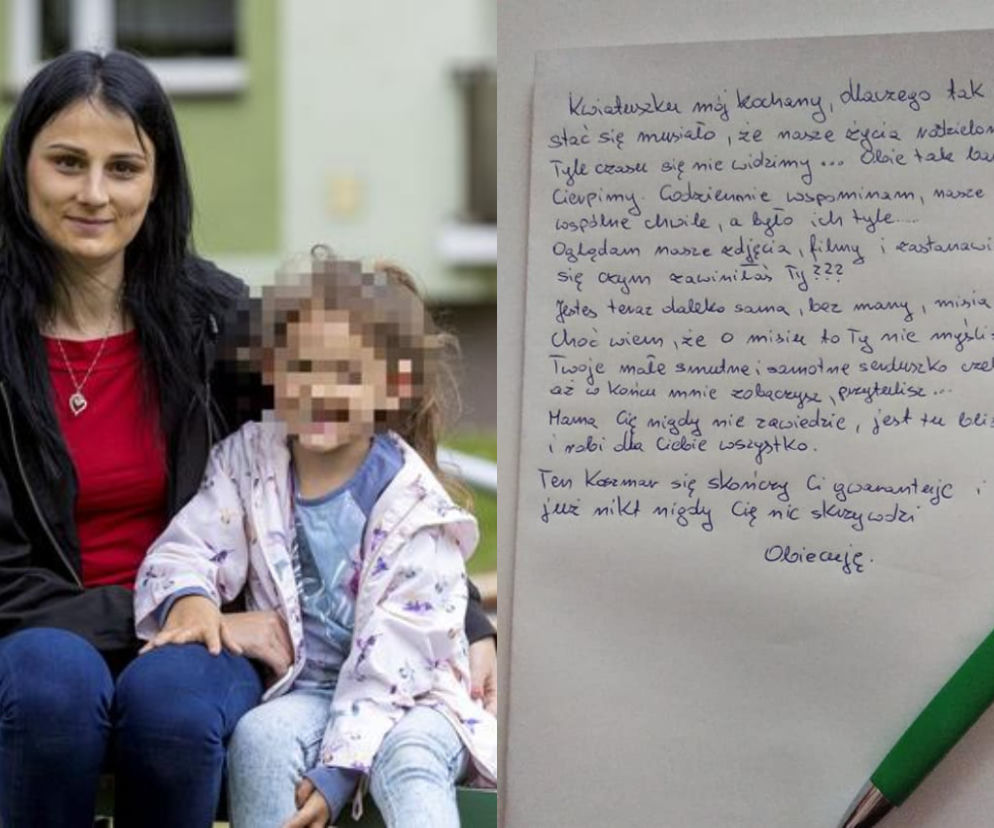 Kwiatuszku mój kochany, dlaczego tak
stać się musiało, że nasze życia rozdzielon
Tyle czasu się nie widzimy ... Obie tak ba
cierpimy. Codziennie wspominam, nasze
wspólne chwile, a było ich tyle.....
Oglądam nasze zdjęcia, filmy i zastanawi
się czym zawiniłaś Ty???
Jesteś teraz daleko sama, bez mamy, misia
Choć wiem, że o misiu to Ty nie myśli
Twoje małe smutne i samotne serduszko cze
aż w końcu mnie zobaczysz, przytulisz...
Mama Cię nigdy nie zawiedzie, jest tu bli
i robi dla Ciebie wszystko.
Ten Koszmar się skończy Ci gwarantuję i
już nikt nigdy Cię nie skrzywdzi
Obiecuję.